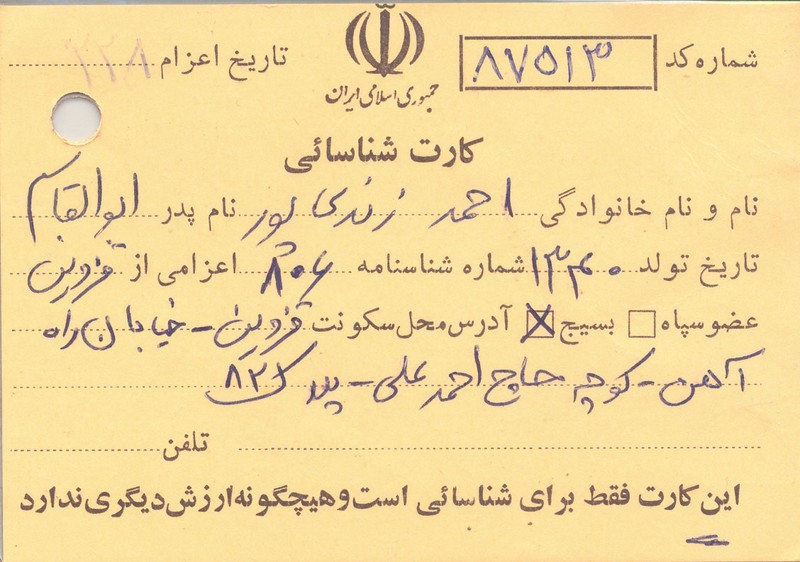 شماره کد ۸۷۵۱۳ تاریخ اعزام
جمهوری اسلامی ایران
کارت شناسائی
نام و نام خانوادگی احمد زندی پور نام پدر ابوالقاسم
تاریخ تولد ۱۳۴۰ شماره شناسنامه ۸۰۶ اعزامی از قزوین
عضو سپاه بسیج آدرس محل سکونت قزوین - خیابان راه
آهن - کوچه حاج احمد علی - پلاک ۸۲۱
تلفن
این کارت فقط برای شناسائی است و هیچگونه ارزش دیگری ندارد